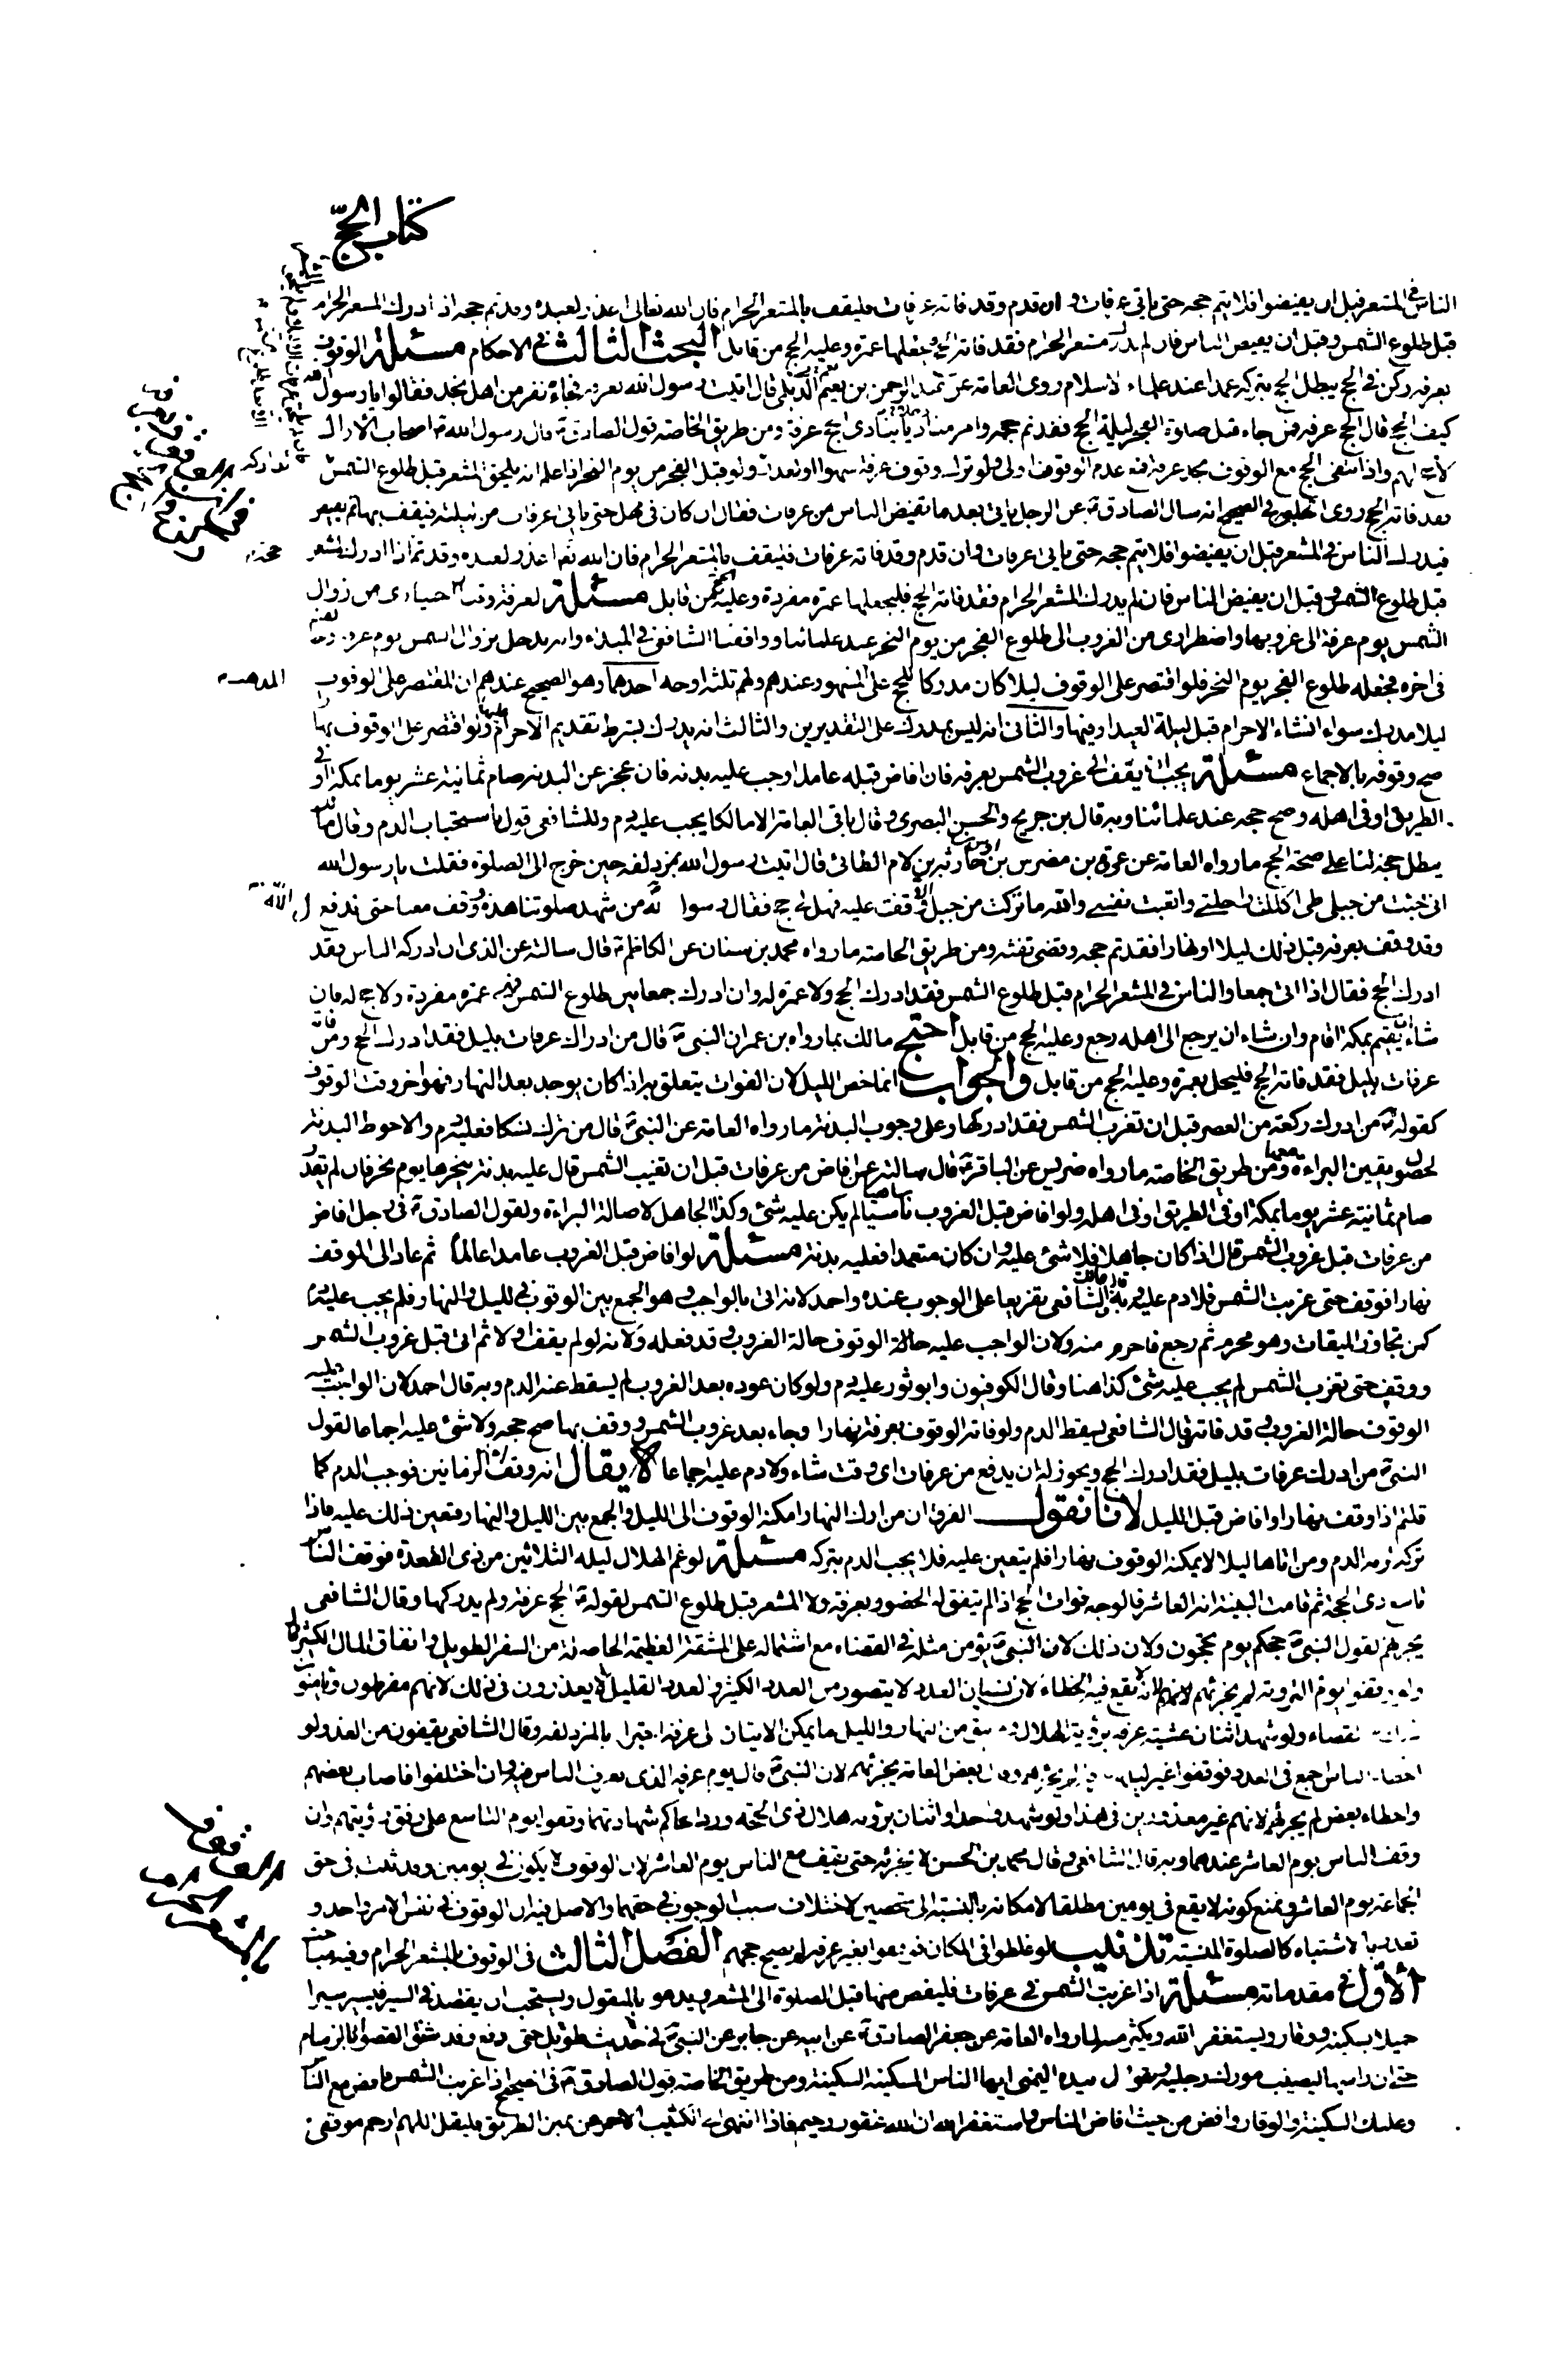 كتاب الحجّ
الناس في المشعر قبل ان يفيضوا فلا يتم حجه حتى ياتي عرفات و ان قدم وقد فاته عرفات فليقف بالمشعر الحرام فان الله تعالى اعذر لعبده وقد تم حجه اذا ادرك المشعر الحرام
قبل طلوع الشمس وقبل ان يفيض الناس فان لم يدرك مشعر الحرام فقد فاته الحج وليجعلها عمرة وعليه الحج من قابل البحث الثالث في الاحكام مسئلة الوقوف
بعرفه ركن في الحج يبطل الحج بتركه عمدا عند علماء الاسلام روى العامة عن عبد الرحمن بن يعمر الديلي قال اتيت رسول الله بعرفه فجاء نفر من اهل نجد فقالوا يا رسول الله
كيف الحج قال الحج عرفه فمن جاء قبل صلوة الفجر ليلة الحج فقد تم حجه وامر مناديا ينادى الحج عرفة ومن طريق الخاصة قول الصادق قال رسول الله اصحاب الأراك
لا حج لهم واذا انتفى الحج مع الوقوف بحد عرفة فمع عدم الوقوف اولى ولو ترك وقوف عرفة سهوا او لعذر تداركه ولو قبل الفجر من يوم النحر اذا علم انه يلحق المشعر قبل طلوع الشمس
فقد فاته الحج روى الحلبي في الصحيح انه سال الصادق عن الرجل ياتي بعد ما يفيض الناس من عرفات فقال ان كان في مهل حتى ياتي عرفات من ليلته فيقف بها ثم يفيض
فيدرك الناس في المشعر قبل ان يفيضوا فلا يتم حجه حتى ياتي عرفات و ان قدم وقد فاته عرفات فليقف بالمشعر الحرام فان الله تعا اعذر لعبده وقد تم اذا ادرك المشعر
قبل طلوع الشمس وقبل ان يفيض الناس فان لم يدرك المشعر الحرام فقد فاته الحج فليجعلها عمرة مفردة وعليه الحج من قابل مسئلة لعرفة وقتان اختيارى من زوال
الشمس يوم عرفة الى غروبها واضطرارى من الغروب الى طلوع الفجر من يوم النحر عند علمائنا ووافقنا الشافعي في المبداء وانه يدخل بزوال الشمس يوم عرفه
في اخره فجعله طلوع الفجر يوم النحر فلو اقتصر على الوقوف ليلا كان مدركا للحج على المشهور عندهم ولهم ثلثة اوجه احدهما وهو الصحيح عندهم ان المقتصر على الوقوف
ليلا مدرك سواء انشاء الاحرام قبل ليلة العيد او فيها والثاني انه ليس بمدرك على التقديرين والثالث انه يدرك بشرط تقديم الاحرام عليها ولو اقتصر على الوقوف نهارا
صح وقوفه بالاجماع مسئلة يجب ان يقف الى غروب الشمس بعرفه فان افاض قبله عامدا وجب عليه بدنه فان عجز عن البدنه صام ثمانية عشر يوما بمكة او في
الطريق او في اهله وصح حجه عند علمائنا وبه قال بن جريح والحسن البصرى وقال باقي العامة الا مالكا يجب عليه دم وللشافعي قول باستحباب الدم وقال مالك
يبطل حجه لنا على صحة الحج ما رواه العامه عن عروة بن مضرس بن اوس بن حارثه بن لام الطائي قال اتيت رسول الله بمزدلفه حين خرج الى الصلوة فقلت يا رسول الله
انى جئت من جبلى طى اكللت راحلتى واتعبت نفسي والله ما تركت من جبل الا وقفت عليه فهل لي حج فقال رسول الله من شهد صلوتنا هذه ووقف معنا حتى ندفع
وقد وقف بعرفه قبل ذلك ليلا او نهارا فقد تم حجه وقضى تفثه ومن طريق الخاصه ما رواه محمد بن سنان عن الكاظم قال سالته عن الذى ان ادركه الناس فقد
ادرك الحج فقال اذا اتى جمعا والناس في المشعر الحرام قبل طلوع الشمس فقد ادرك الحج ولا عمرة له وان ادرك جمعا بعد طلوع الشمس فهى عمرة مفردة ولا حج له فان
شاء ان يقيم بمكة اقام وان شاء ان يرجع الى اهله رجع وعليه الحج من قابل احتج مالك بما رواه بن عمر ان النبى قال من ادرك عرفات بليل فقد ادرك الحج ومن فاته
عرفات بليل فقد فاته الحج فليحل بعمرة وعليه الحج من قابل والجواب انما خص الليل لان الفوات يتعلق به اذا كان يوجد بعد النهار فهو اخر وقت الوقوف
كقوله من ادرك ركعة من العصر قبل ان تغرب الشمس فقد ادركها وعلى وجوب البدنه ما رواه العامة عن النبى قال من ترك نسكا فعليه دم والاحوط البدنه
لحصول يقين البراءة معها ومن طريق الخاصه ما رواه ضريس عن الباقر قال سالته عمن افاض من عرفات قبل ان تغيب الشمس قال عليه بدنة ينحرها يوم نحر فان لم يقدر
صام ثمانية عشر يوما بمكة او في الطريق او في اهله ولو افاض قبل الغروب ناسيا لم يكن عليه شئ وكذا الجاهل لاصالة البراءة ولقول الصادق في رجل افاض
من عرفات قبل غروب الشمس قال اذا كان جاهلا فلا شئ عليه وان كان متعمدا فعليه بدنة مسئلة لو افاض قبل الغروب عامدا عالما ثم عاد الى الموقف
نهارا فوقف حتى غربت الشمس فلا دم عليه وبه قال مالك والشافعي تفريعا على الوجوب عنده واحمد لانه اتى بالواجب وهو الجمع بين الوقوف في الليل والنهار فلم يجب عليه دم
كمن تجاوز الميقات وهو محرم ثم رجع فاحرم منه ولان الواجب عليه حالة الوقوف حالة الغروب وقد فعله ولانه لو لم يقف اولا ثم اتى قبل غروب الشمس
ووقف حتى تغرب الشمس لم يجب عليه شئ كذا هنا وقال الكوفيون وابو ثور عليه دم ولو كان عوده بعد الغروب لم يسقط عنه الدم وبه قال احمد لان الواجب عليه
الوقوف حالة الغروب وقد فاته وقال الشافعي يسقط الدم ولو فاته الوقوف بعرفة نهارا وجاء بعد غروب الشمس ووقف بها صح حجه ولا شئ عليه اجماعا لقول
النبى من ادرك عرفات بليل فقد ادرك الحج ويجوز له ان يدفع من عرفات اى وقت شاء ولا دم عليه اجماعا لا يقال انه وقف احد الزمانين فوجب الدم كما
قلتم اذا وقف نهارا وافاض قبل الليل لانا نقول الفرق ان من ادرك النهار امكنه الوقوف الى الليل والجمع بين الليل والنهار فتعين ذلك عليه فاذا
تركه لزمه الدم ومن اتاها ليلا لا يمكنه الوقوف نهارا فلم يتعين عليه فلا يجب الدم بتركه مسئلة لو غم الهلال ليله الثلاثين من ذى القعدة فوقف الناس
تاسع ذى الحجة ثم قامت البينة انه العاشر فالوجه فوات الحج اذا لم يتفق له الحضور بعرفة ولا المشعر قبل طلوع الشمس لقوله الحج عرفة ولم يدركها وقال الشافعي
يجزيهم لقول النبى حجكم يوم تحجون ولان ذلك لا يؤمن مثله في القضاء مع اشتماله على المشقة العظيمة الحاصلة من السفر الطويل و انفاق المال الكثير
يوم التروية لم يجزئهم لانه لا يقع فيه الخطاء لان نسيان العدد لا يتصور من العدد الكثير والعدد القليل لا يعذرون في ذلك لانهم مفرطون
القضاء ولو شهد اثنان عشية عرفه برؤية الهلال بقى من النهار والليل ما يمكن الاتيان الى عرفة بالمزدلفه وقال الشافعي يقفون من الغد ولو
الناس اجمع في العدد فوقفوا غير ليلة بعض العامة يجزئهم لان النبى قال يوم عرفه الذى يعرف الناس فيه وان اختلفوا فاصاب بعضهم
واخطاء بعض لم يجزئهم لانهم غير معذورين في هذا ولو شهد واحد او اثنان برؤيه هلال ذى الحجه ورد الحاكم شهادتهما وقفوا يوم التاسع على وفق رؤيتهم وان
وقف الناس يوم العاشر عندهما وبه قال الشافعي وقال محمد بن الحسن لا يجزئه حتى يقف مع الناس يوم العاشر لان الوقوف لا يكون في يومين وقد ثبت في حق
الجماعة يوم العاشر ونمنع كونه لا يقع في يومين مطلقا لامكانه بالنسبة الى شخصين لاختلاف سبب الوجوب في حقهما والاصل فيه ان الوقوف في نفس الامر واحد و
الاشتباه كالصلوة المنسية تذنيب لو غلطوا في المكان فوقفوا بغير عرفة لم يصح حجهم الفصل الثالث في الوقوف بالمشعر الحرام وفيه مباحث
الاول في مقدماته مسئلة اذا غربت الشمس في عرفات فليفض منها قبل الصلوة الى المشعر ويدعو بالمنقول ويستحب ان يقتصد في السير فيسير سيرا
جميلا بسكينه ووقار ويستغفر الله ويكثر منه لما رواه العامه عن جعفر الصادق عن ابيه عن جابر عن النبى في حديث طويل حتى دفع وقد شنق القصواء بالزمام
حتى ان راسها ليصيب مورك رجله ويقول بيده اليمنى ايها الناس السكينة السكينة ومن طريق الخاصه قول الصادق في الصحيح اذا غربت الشمس فافض مع الناس
وعليك السكينة والوقار وافض من حيث افاض الناس واستغفر الله ان الله غفور رحيم فاذا انتهى الى الكثيب الاحمر عن يمين الطريق فليقل اللهم ارحم موقفى